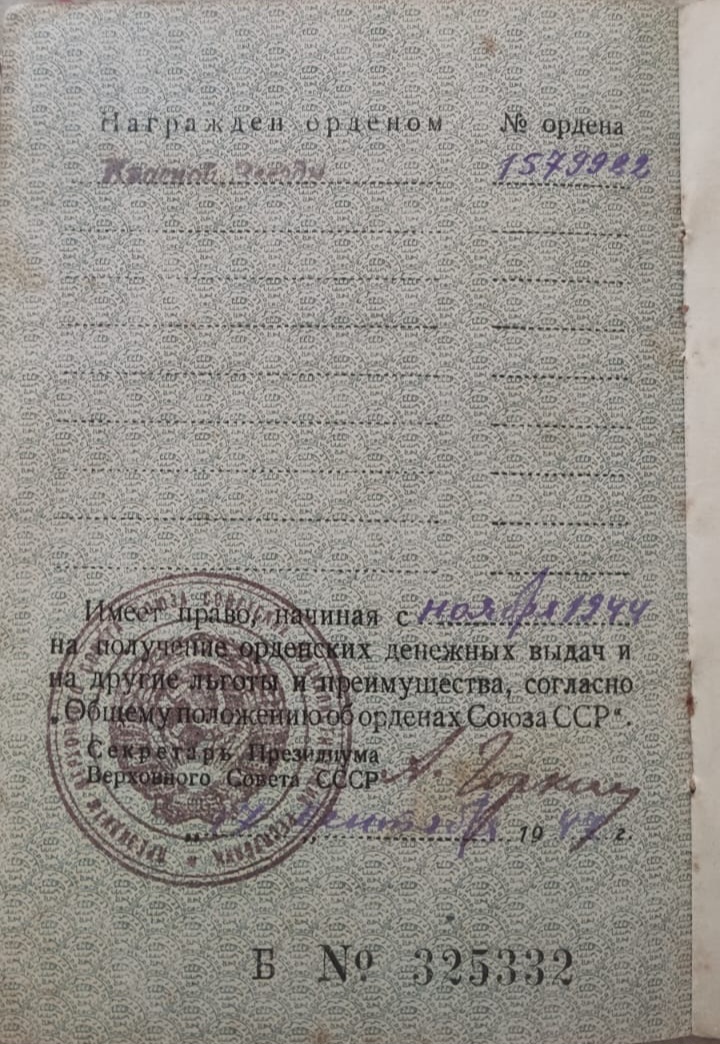 Награжден орденом № ордена
Красной Звезды 1579922
Имеет право, начиная с ноября 1944
на получение орденских денежных выдач и
на другие льготы и преимущества, согласно
„Общему положению об орденах Союза ССР“.
Секретарь Президиума
Верховного Совета СССР А. Горкин
сентября 1947 г.
Б № 325332